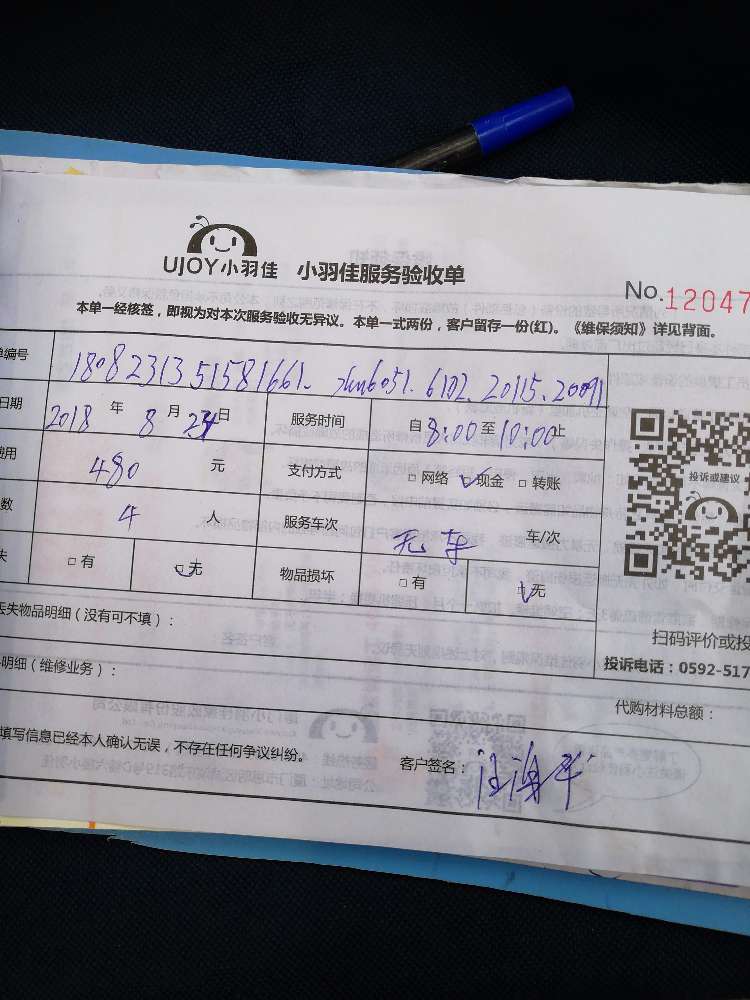 UJOY小羽佳 小羽佳服务验收单
No.12047
本单一经核签，即视为对本次服务验收无异议。本单一式两份，客户留存一份(红)。《维保须知》详见背面。
单编号 1808231351581661. 6051.6102.20115.20091
日期 2018 年 8 月 24 日 服务时间 自 8:00 至 10:00 止
费用 480 元 支付方式 □ 网络 ☑ 现金 □ 转账
数 4 人 服务车次 无车 车/次
失 □ 有 ☑ 无 物品损坏 □ 有 ☑ 无
投诉或建议
扫码评价或投
丢失物品明细（没有可不填）：
投诉电话：0592-517
明细（维修业务）：
代购材料总额：
填写信息已经本人确认无误，不存在任何争议纠纷。
客户签名：